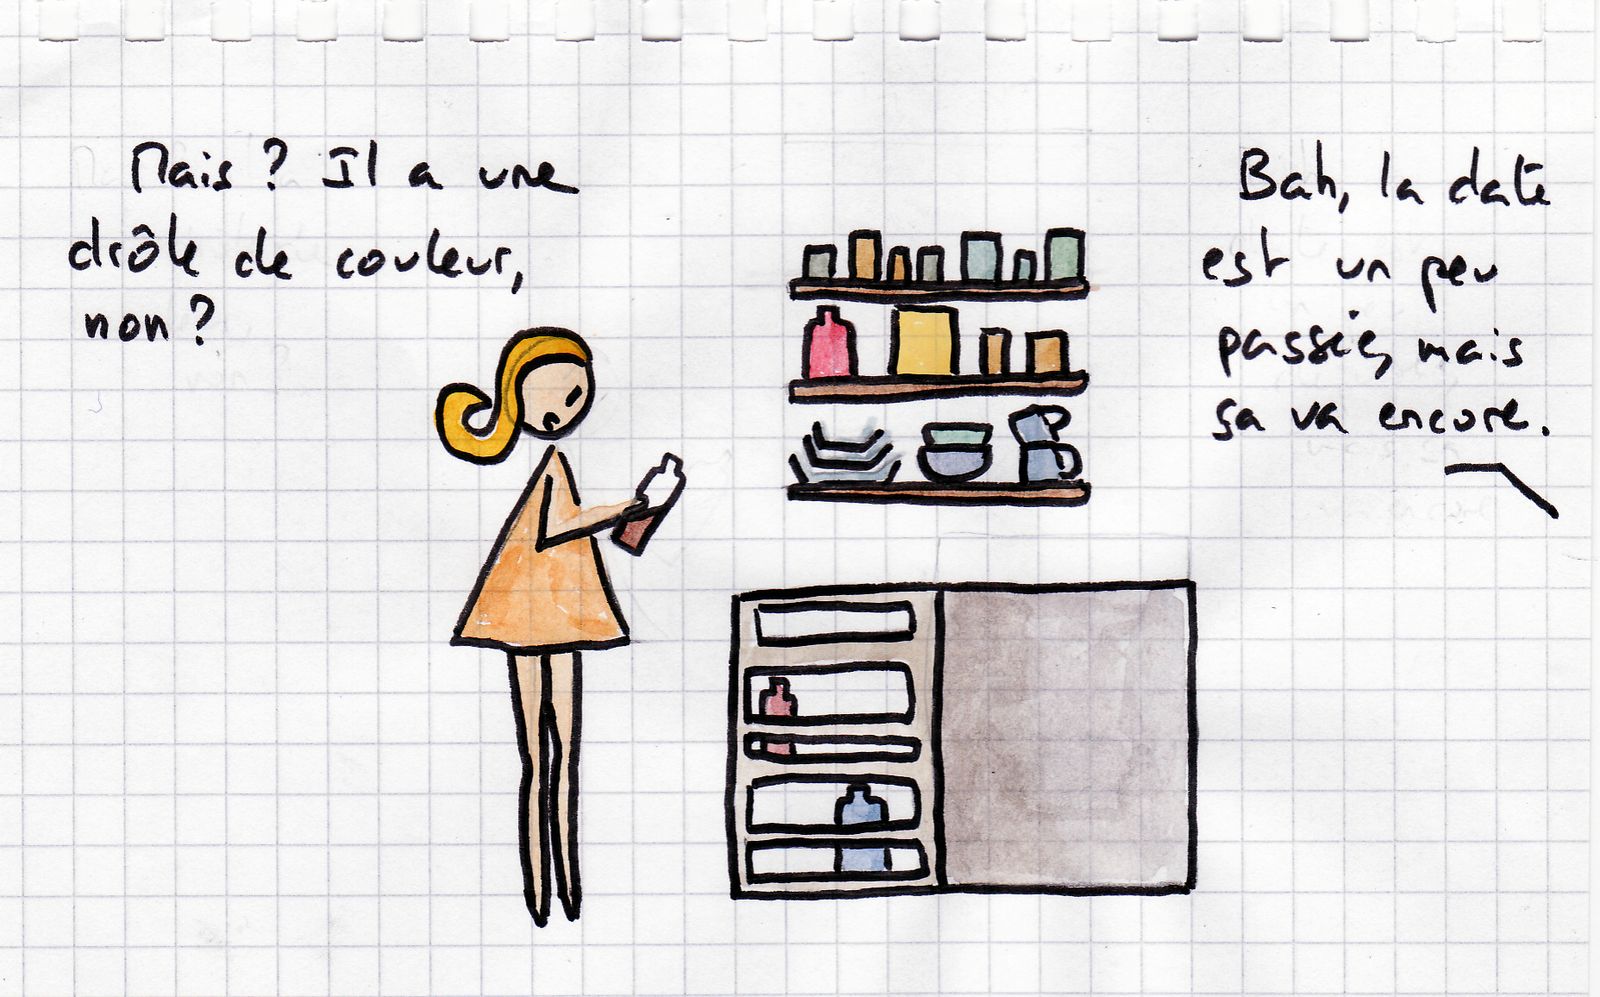 Mais ? Il a une
drôle de couleur,
non ?
Bah, la date
est un peu
passée, mais
sa va encore.